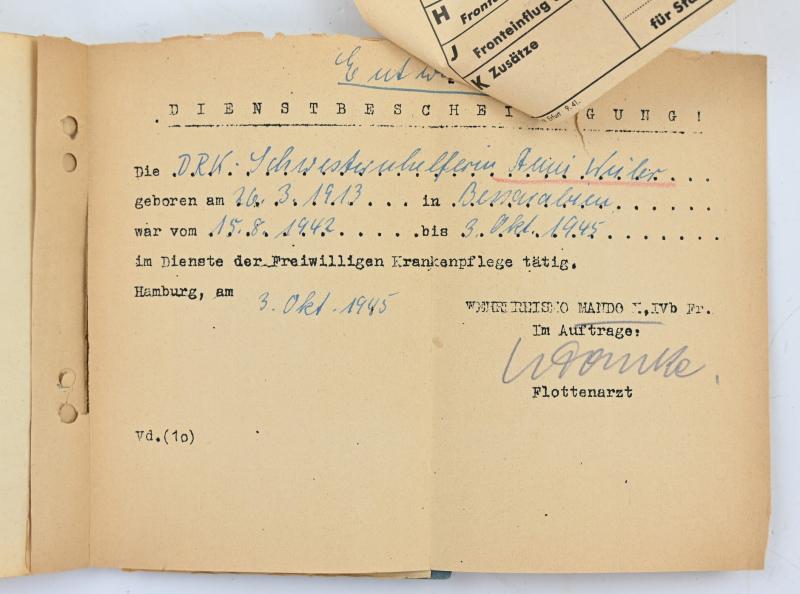 H Fronte
J Fronteinflug
K Zusätze
für Sta
9.41.
Entw
DIENSTBESCHEI GUNG!
Die DRK. Schwesternhelferin Anni Weiler
geboren am 26.3.1913 in Bessarabien
war vom 15.8.1942 bis 3. Okt. 1945
im Dienste der Freiwilligen Krankenpflege tätig.
Hamburg, am 3. Okt. 1945
WEHRKREISKO MANDO X, IVb Fr.
Im Auftrage:
Flottenarzt
Vd.(10)